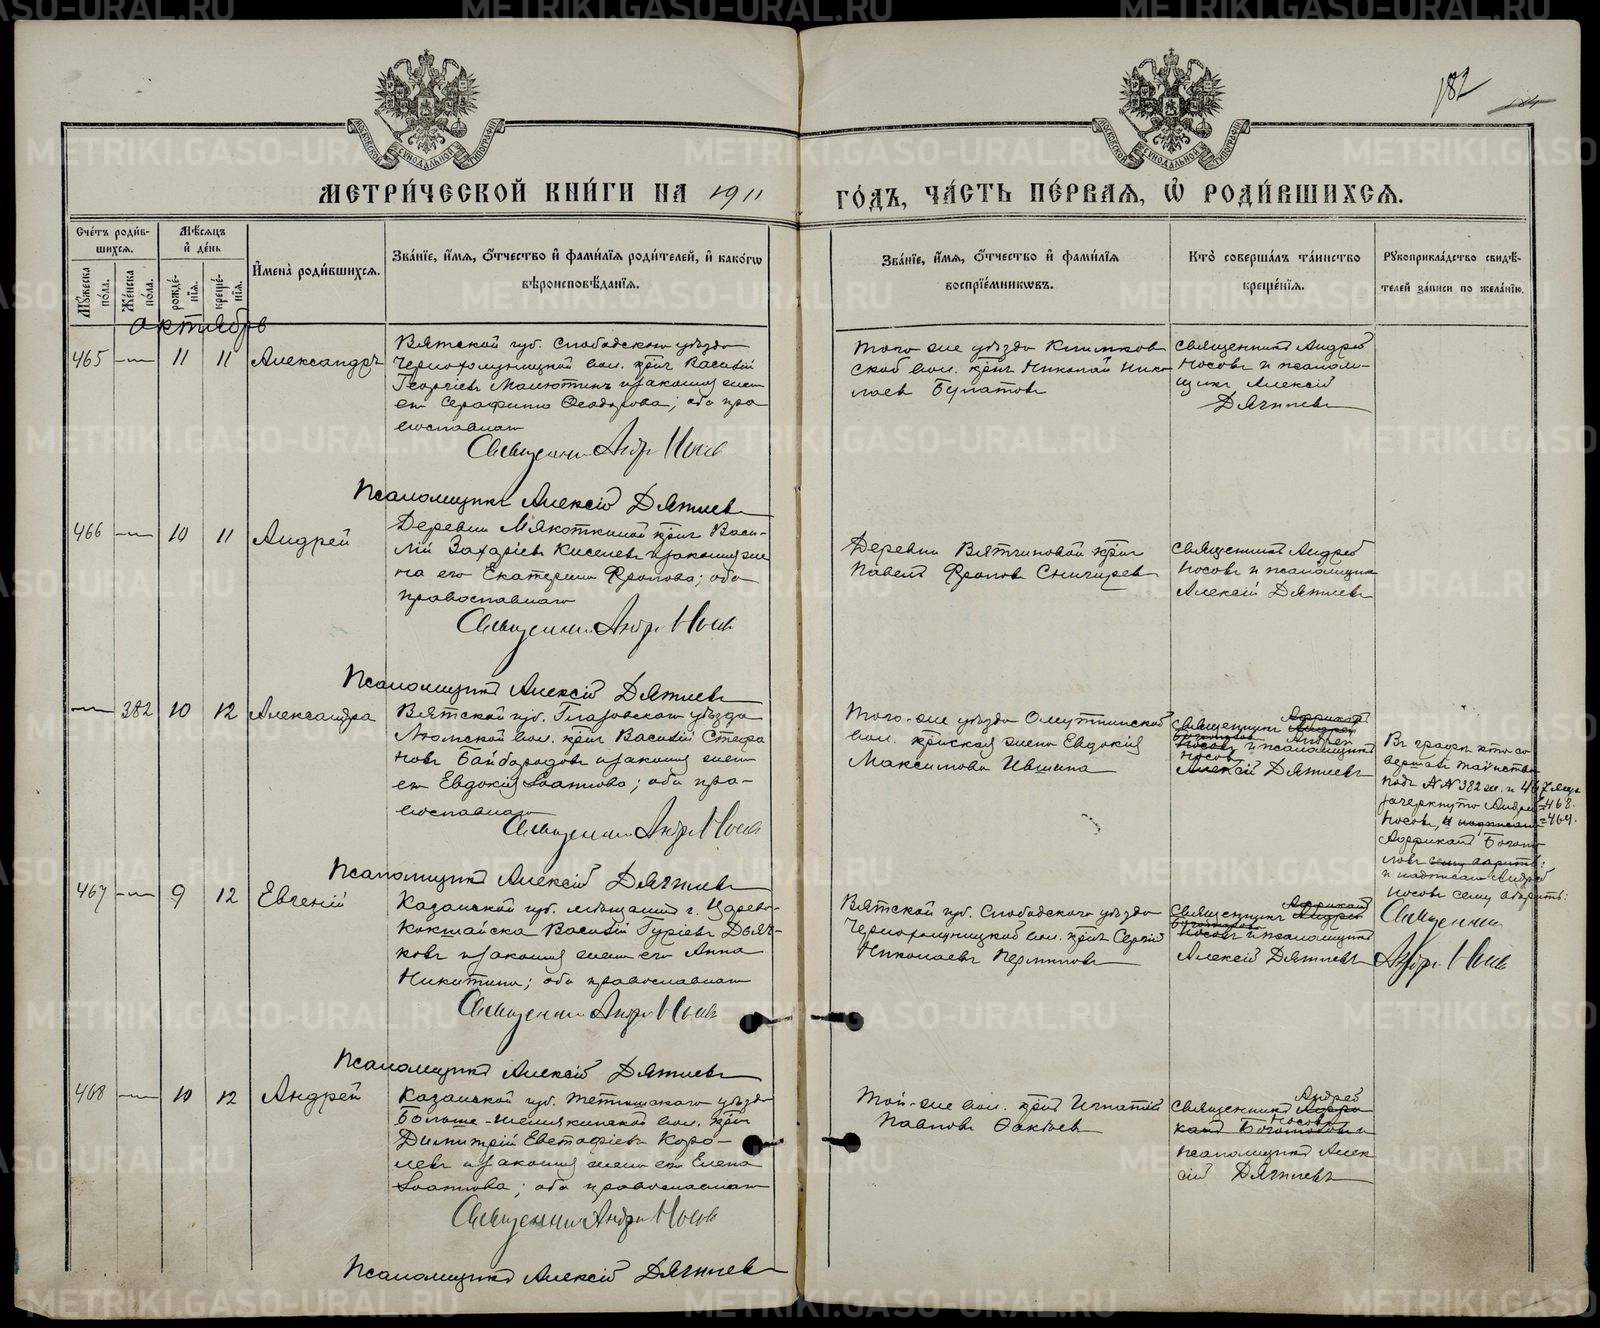 182
МОСКОВСКОЙ СѴНОДАЛЬНОЙ ТИПОГРАФІИ
МОСКОВСКОЙ СѴНОДАЛЬНОЙ ТИПОГРАФІИ
МЕТРИ́ЧЕСКОЙ КНИ́ГИ НА 1911
ГО́ДЪ, ЧА́СТЬ ПЕ́РВАЯ, Ѡ РОДИ́ВШИХСЯ.
Сче́тъ роди́в-
шихся.
Мꙋ́жеска по́ла.
Же́нска по́ла.
Мѣ́сяцъ
и де́нь
рожде́-
нія.
креще́-
нія.
Имена̀ роди́вшихся.
Зва́ніе, и́мя, о́тчество и фами́лія роди́телей, и како́гѡ
вѣроисповѣ́данія.
Зва́ніе, и́мя, о́тчество и фами́лія
воспріе́мникѡвъ.
Кто̀ соверша́лъ та́инство
креще́нія.
Рꙋкоприкла́дство свидѣ́-
телей за́писи по жела́нію.
октябрь
465 — 11 11 Александръ
Вятской губ. Слободского уѣзда
Чернохолуницкой вол. крест. Василій
Георгіевъ Малютинъ и законная жена
его Серафима Ѳеодорова; оба пра-
вославные
Священникъ Андр. Носовъ
Псаломщикъ Алексій Дягилевъ
того же уѣзда Климков
ской вол. крест. Николай Нико
лаевъ Булатовъ
священникъ Андрей
Носовъ и псалом-
щикъ Алексій
Дягилевъ
466 — 10 11 Андрей
Деревни Мякоткиной крест. Васи-
лій Захаріевъ Киселевъ и законная же
на его Екатерина Фролова; оба
православные
Священникъ Андр. Носовъ
Псаломщикъ Алексій Дягилевъ
Деревни Вятчиновой крест.
Павелъ Фроловъ Снигиревъ
священникъ Андрей
Носовъ и псаломщикъ
Алексій Дягилевъ
— 382 10 12 Александра
Вятской губ. Глазовскаго уѣзда
Люмской вол. крест. Василій Стефа
новъ Байбородовъ и законная жена
его Евдокія Іоаннова; оба пра-
вославные
Священникъ Андр. Носовъ
Псаломщикъ Алексій Дягилевъ
Того-же уѣзда Омутнинской
вол. крестьянская жена Евдокія
Максимова Ившина
Африканъ
священникъ Андрей
Боголюбовъ Андрей
Носовъ и псаломщикъ
Носовъ
Алексій Дягилевъ
Въ графѣ кто со
вершалъ таинство
подъ №№ 382 ж. и 467 муж.
зачеркнуто Андрей =468.
Носовъ, и надписано =469.
Африканъ Боголю
бовъ
и надписано Андрей
Носовъ сему вѣрить:
Священникъ
Андр. Носовъ
467 — 9 12 Евгеній
Казанской губ. мѣщанинъ г. Царево-
кокшайска Василій Гуріевъ Дьяч-
ковъ и законная жена его Анна
Никитина; оба православные
Священникъ Андр. Носовъ
Псаломщикъ Алексій Дягилевъ
Вятской губ. Слободского уѣзда
Чернохолуницкой вол. крест. Сергій
Николаевъ Перминовъ
Африканъ
священникъ Андрей
Боголюбовъ
Носовъ и псаломщикъ
Алексій Дягилевъ
468 — 10 12 Андрей
Казанской губ. Тетюшскаго уѣзда
Больше-шемякинской вол. крест.
Димитрій Евстафіевъ Коро-
левъ и законная жена его Елена
Іоаннова; оба православные
Священникъ Андр. Носовъ
Псаломщикъ Алексій Дягилевъ
Той-же вол. крест. Игнатій
Павловъ
Андрей
священникъ Афри
Носовъ
канъ Боголюбовъ и
псаломщикъ Алек
сій Дягилевъ
METRIKI.GASO-URAL.RU